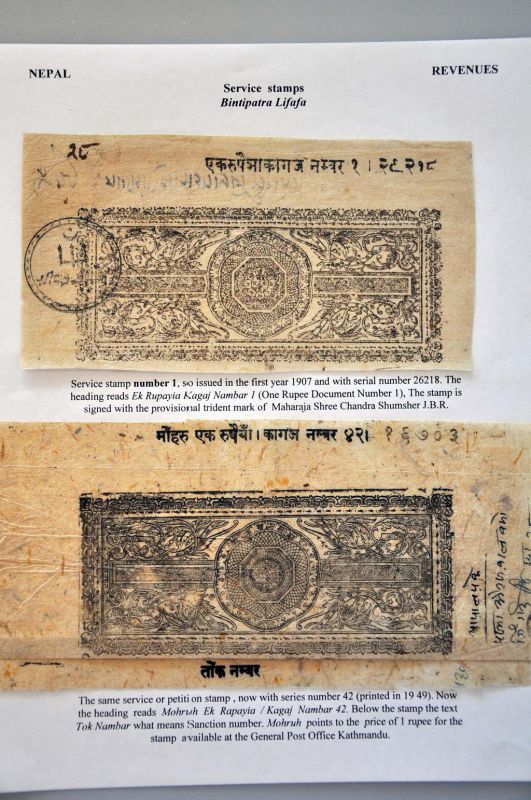 NEPAL
REVENUES
Service stamps
Bintipatra Lifafa
२८
एकरुपैञाकागज नम्बर १ । २६२१८
Service stamp number 1, so issued in the first year 1907 and with serial number 26218. The
heading reads Ek Rupayia Kagaj Nambar 1 (One Rupee Document Number 1), The stamp is
signed with the provisional trident mark of Maharaja Shree Chandra Shumsher J.B.R.
मोहरु एक रुपैयाँ । कागज नम्बर ४२। १६७०३
तोक नम्बर
The same service or petiti on stamp , now with series number 42 (printed in 19 49). Now
the heading reads Mohruh Ek Rapayia / Kagaj Nambar 42. Below the stamp the text
Tok Nambar what means Sanction number. Mohruh points to the price of 1 rupee for the
stamp available at the General Post Office Kathmandu.